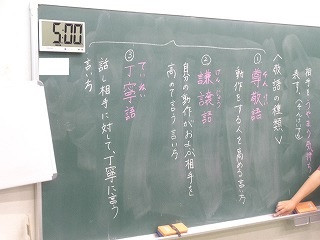 5:00
相手をうやまう気持ち
表す。
＜敬語の種類＞
①尊敬語
動作をする人を高める言い方
②謙譲語
けんじょう
自分の動作がおよぶ相手を
高めて言う言い方
③丁寧語
ていねい
話し相手に対して、丁寧に言う
言い方